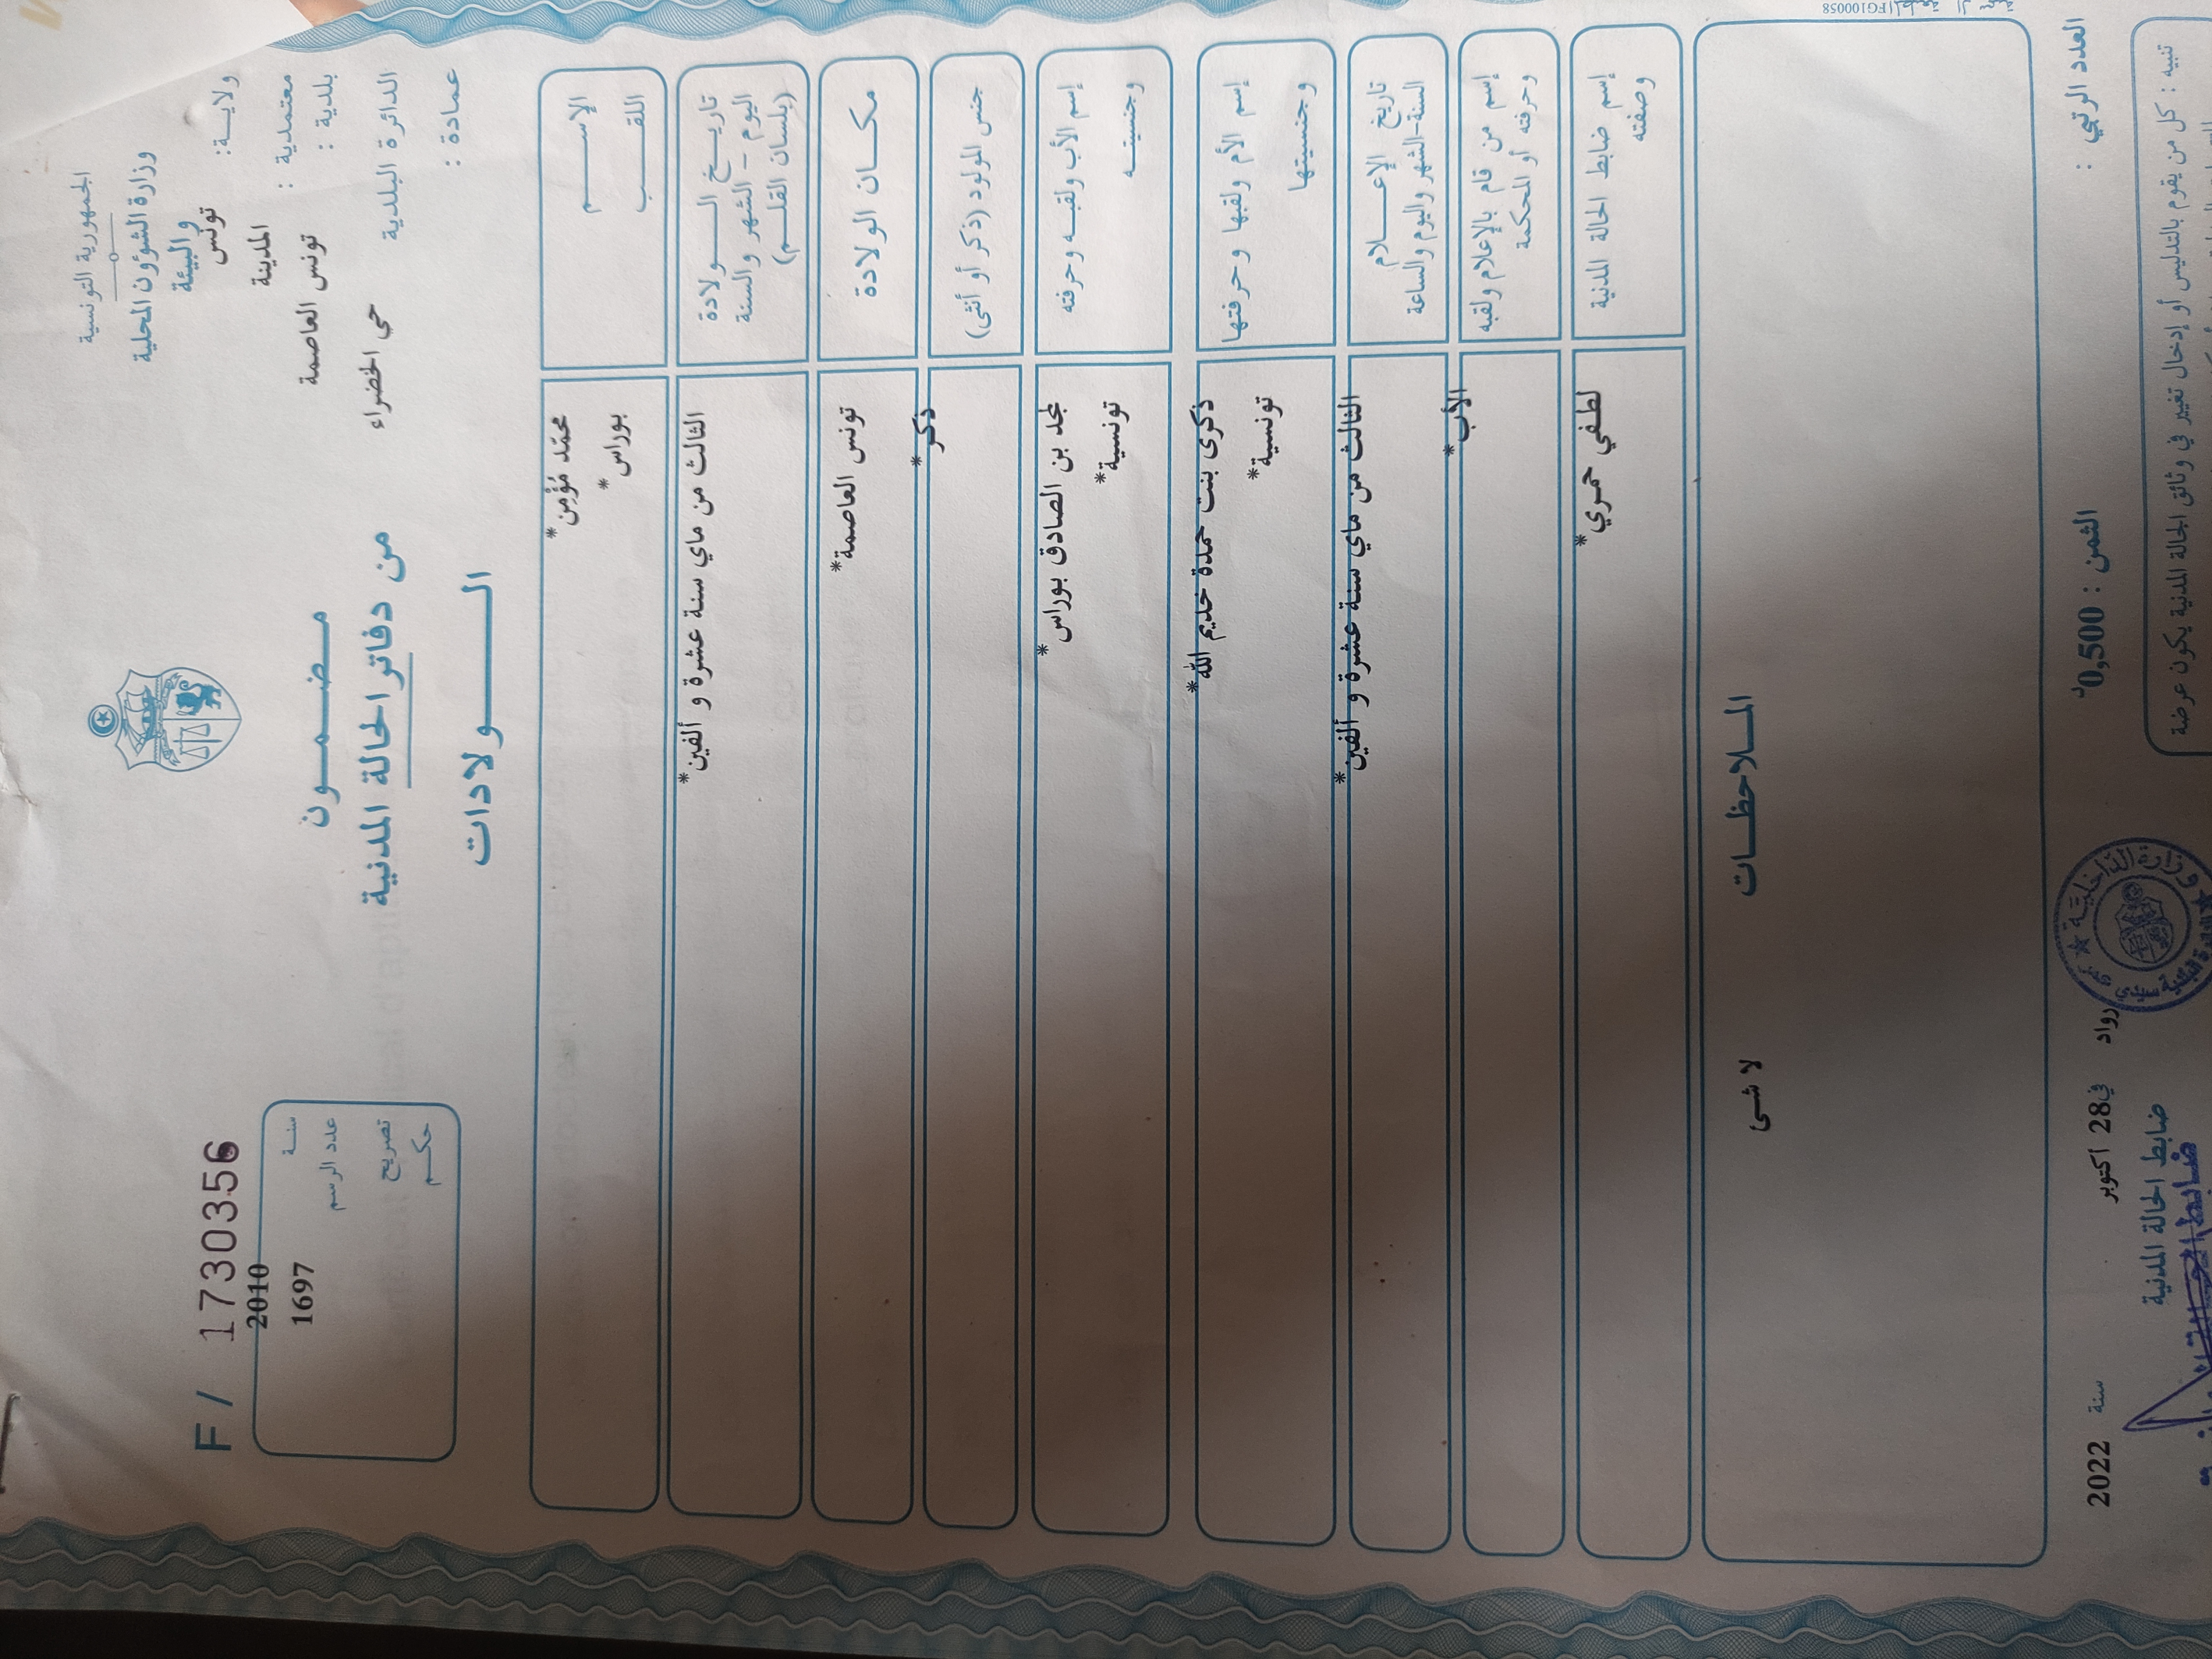 الجمهورية التونسية
وزارة الشؤون المحلية
والبيئة
ولايـــة: تونس
معتمدية : المدينة
بلدية : تونس العاصمة
الدائرة البلدية حي الخضراء
عمادة :
F / 1730356
سنــة 2010
عدد الرسم 1697
تصريح
حكــم
مـضـمـون
من دفاتر الحالة المدنية
الـولادات
الإســـم محمّد مُؤْمِن*
اللقــب بوراس*
تاريــخ الــولادة الثالث من ماي سنة عشرة و ألفين*
اليوم - الشهر والسنة
(بلسان القلــم)
مكــان الولادة تونس العاصمة*
جنس المولود (ذكر أو أنثى) ذكر*
إسم الأب ولقبــه وحرفته لمجد بن الصادق بوراس*
وجنسيتــه تونسية*
إسم الأم ولقبها وحرفتها ذكرى بنت حمدة خديم الله*
وجنسيتها تونسية*
تاريخ الإعــلام الثالث من ماي سنة عشرة و ألفين*
السنة-الشهر واليوم والساعة
إسم من قام بالإعلام ولقبه الأب*
وحرفته أو المحكمة
إسم ضابط الحالة المدنية لطفي حمري*
وصفته
المـلاحظـات
لا شى
العدد الرتبي :
الثمن : 0,500د
رواد في 28 اكتوبر سنة 2022
ضابط الحالة المدنية
وزارة الداخلية
تنبيه : كل من يقوم بالتدليس أو إدخال تغيير في وثائق الحالة المدنية يكون عرضة
FG100058